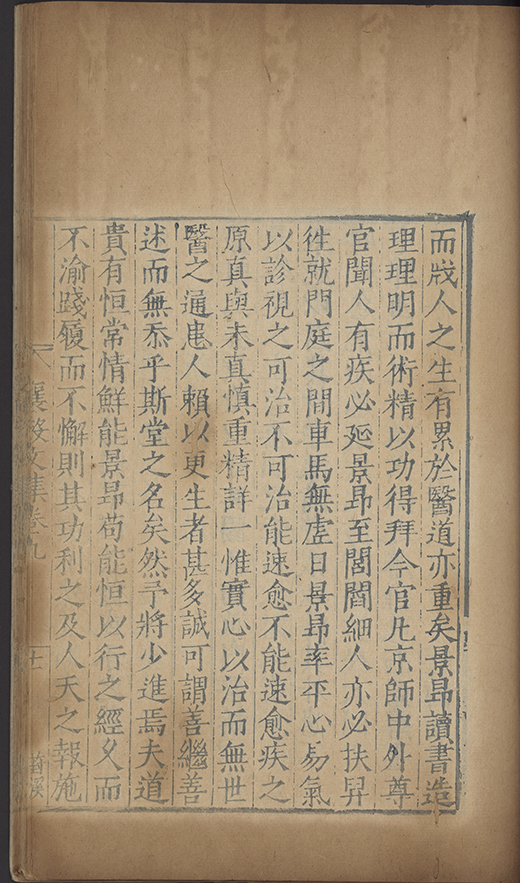 而戕人之生有累於醫道亦重矣景昻讀書造
理理明而術精以功得拜今官凡京師中外尊
官聞人有疾必延景昻至閭閻細人亦必扶昇
徃就門庭之間車馬無虛日景昻率平心易氣
以診視之可治不可治能速愈不能速愈疾之
原真與未真慎重精詳一惟實心以治而無世
醫之通患人賴以更生者甚多誠可謂善繼善
述而無忝乎斯堂之名矣然予將少進焉夫道
貴有恒常情鮮能景昻苟能恒以行之經久而
不渝踐履而不懈則其功利之及人天之報施
襄毅文集卷九